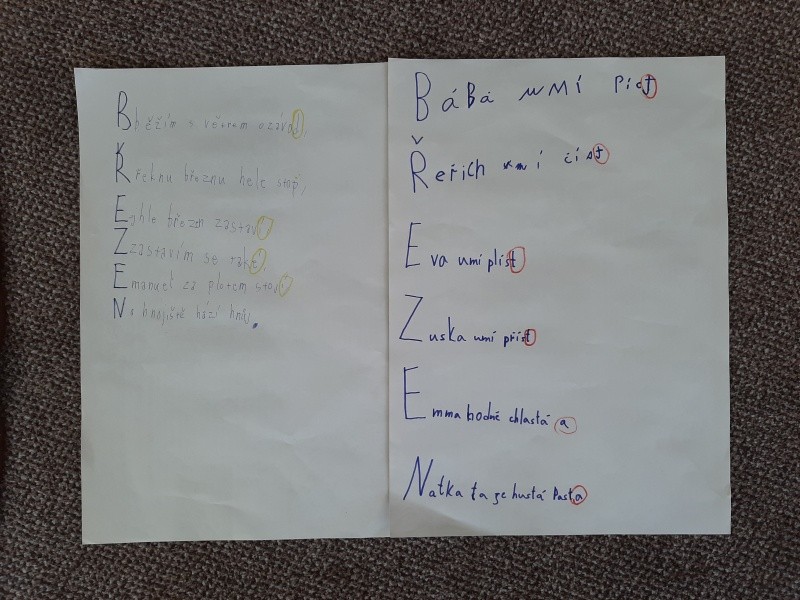 Běžím s větrem o závod,
Řeknu březnu hele stop,
Ejhle březen zastaví,
Zzastavím se také,
Emanuel za plotem stojí
Na hnojiště hází hnůj.
Bába umí píct
Řeřich umí číst
Eva umí plíst
Zuska umí příst
Emma hodně chlastá a
Natka ta je hustá Pasta